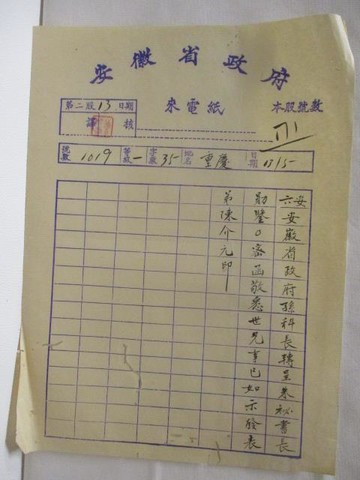 安徽省政府
第二股 13 日期
來電紙
本股號數
譯 核
171
號數 1019 等級 一 字數 35 地名 重慶 日期 11/15
六安安徽省政府孫科長轉呈朱秘書長
勛鑒○密函敬悉世兄事已如示發表
弟陳介元印